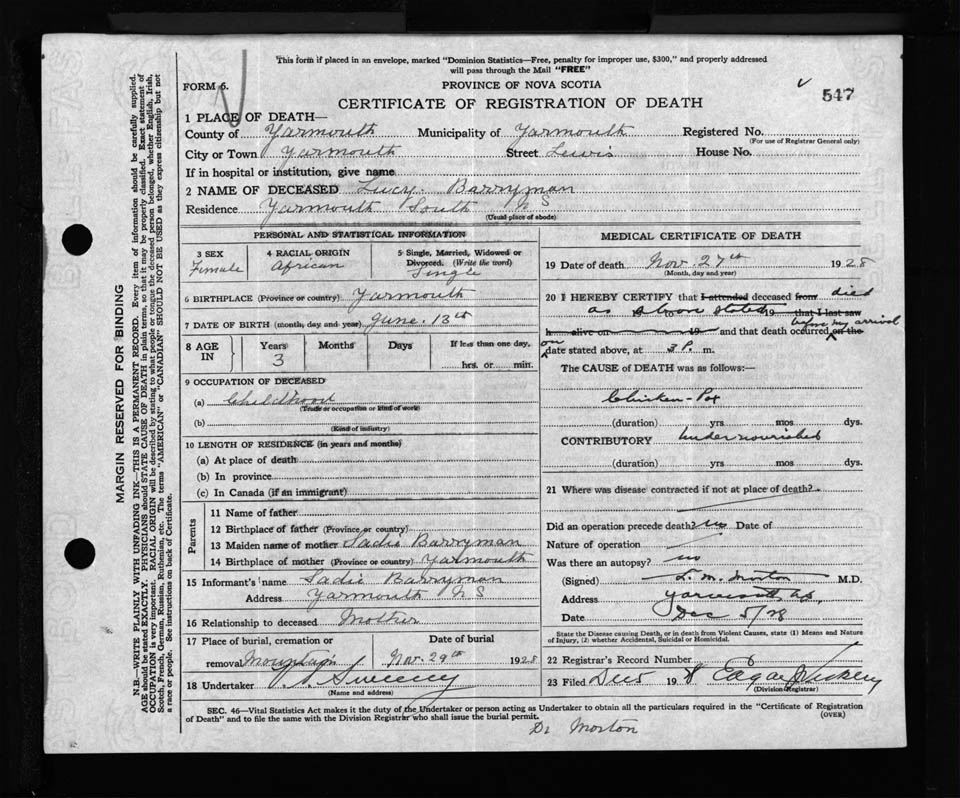 This form if placed in an envelope, marked "Dominion Statistics—Free, penalty for improper use, $300," and properly addressed
will pass through the Mail "FREE"
FORM 6.
PROVINCE OF NOVA SCOTIA
547
CERTIFICATE OF REGISTRATION OF DEATH
1 PLACE OF DEATH—
County of Yarmouth Municipality of Yarmouth Registered No.
(For use of Registrar General only)
City or Town Yarmouth Street Lewis House No.
If in hospital or institution, give name
2 NAME OF DECEASED Lucy Barryman
Residence Yarmouth South N S
(Usual place of abode)
PERSONAL AND STATISTICAL INFORMATION
3 SEX 4 RACIAL ORIGIN 5 Single, Married, Widowed or
Divorced. (Write the word)
Female African Single
6 BIRTHPLACE (Province or country) Yarmouth
7 DATE OF BIRTH (month, day and year) June 13th
8 AGE IN Years Months Days If less than one day,
3 hrs. or min.
9 OCCUPATION OF DECEASED
(a) Childhood
(Trade or occupation or kind of work)
(b)
(Kind of industry)
10 LENGTH OF RESIDENCE (in years and months)
(a) At place of death
(b) In province
(c) In Canada (if an immigrant)
Parents
11 Name of father
12 Birthplace of father (Province or country)
13 Maiden name of mother Sadie Barryman
14 Birthplace of mother (Province or country) Yarmouth
15 Informant's name Sadie Barryman
Address Yarmouth N S
16 Relationship to deceased Mother
17 Place of burial, cremation or removal Mountain
Date of burial
Nov. 29th 1928
18 Undertaker Sweeney
(Name and address)
MEDICAL CERTIFICATE OF DEATH
19 Date of death Nov. 27th 1928
(Month, day and year)
20 I HEREBY CERTIFY that I attended deceased from died
as above stated 19 that I last saw
h alive on 19 and that death occurred before my arrival on the
on date stated above, at 3 P. m.
The CAUSE of DEATH was as follows:—
Chicken-Pox
(duration) yrs mos dys.
CONTRIBUTORY Undernourished
(duration) yrs mos dys.
21 Where was disease contracted if not at place of death?
Did an operation precede death? no Date of
Nature of operation
Was there an autopsy? no
(Signed) L. M. Morton M.D.
Address Yarmouth, N.S.
Date Dec 5/28
State the Disease causing Death, or in death from Violent Causes, state (1) Means and Nature
of Injury, (2) whether Accidental, Suicidal or Homicidal.
22 Registrar's Record Number
23 Filed Dec 5 1928 Edgar
(Division Registrar)
SEC. 46—Vital Statistics Act makes it the duty of the Undertaker or person acting as Undertaker to obtain all the particulars required in the "Certificate of Registration
of Death" and to file the same with the Division Registrar who shall issue the burial permit. (OVER)
Dr Morton
MARGIN RESERVED FOR BINDING
N.B.—WRITE PLAINLY WITH UNFADING INK—THIS IS A PERMANENT RECORD. Every item of information should be carefully supplied.
AGE should be stated EXACTLY. PHYSICIANS should STATE CAUSE OF DEATH in plain terms, so that it may be properly classified. Exact statement of
OCCUPATION is very important. RACIAL ORIGIN will be described by stating to what people or tongue the deceased person belonged, whether English, Irish,
Scotch, French, German, Russian, Ruthenian, etc. The terms "AMERICAN" or "CANADIAN" SHOULD NOT BE USED as they express citizenship but not
a race or people. See instructions on back of Certificate.